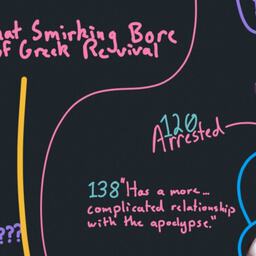 hat Smirking Bore
of Greek Revival
120
Arrested
138 "Has a more...
complicated relationship
with the apoclypse."
???